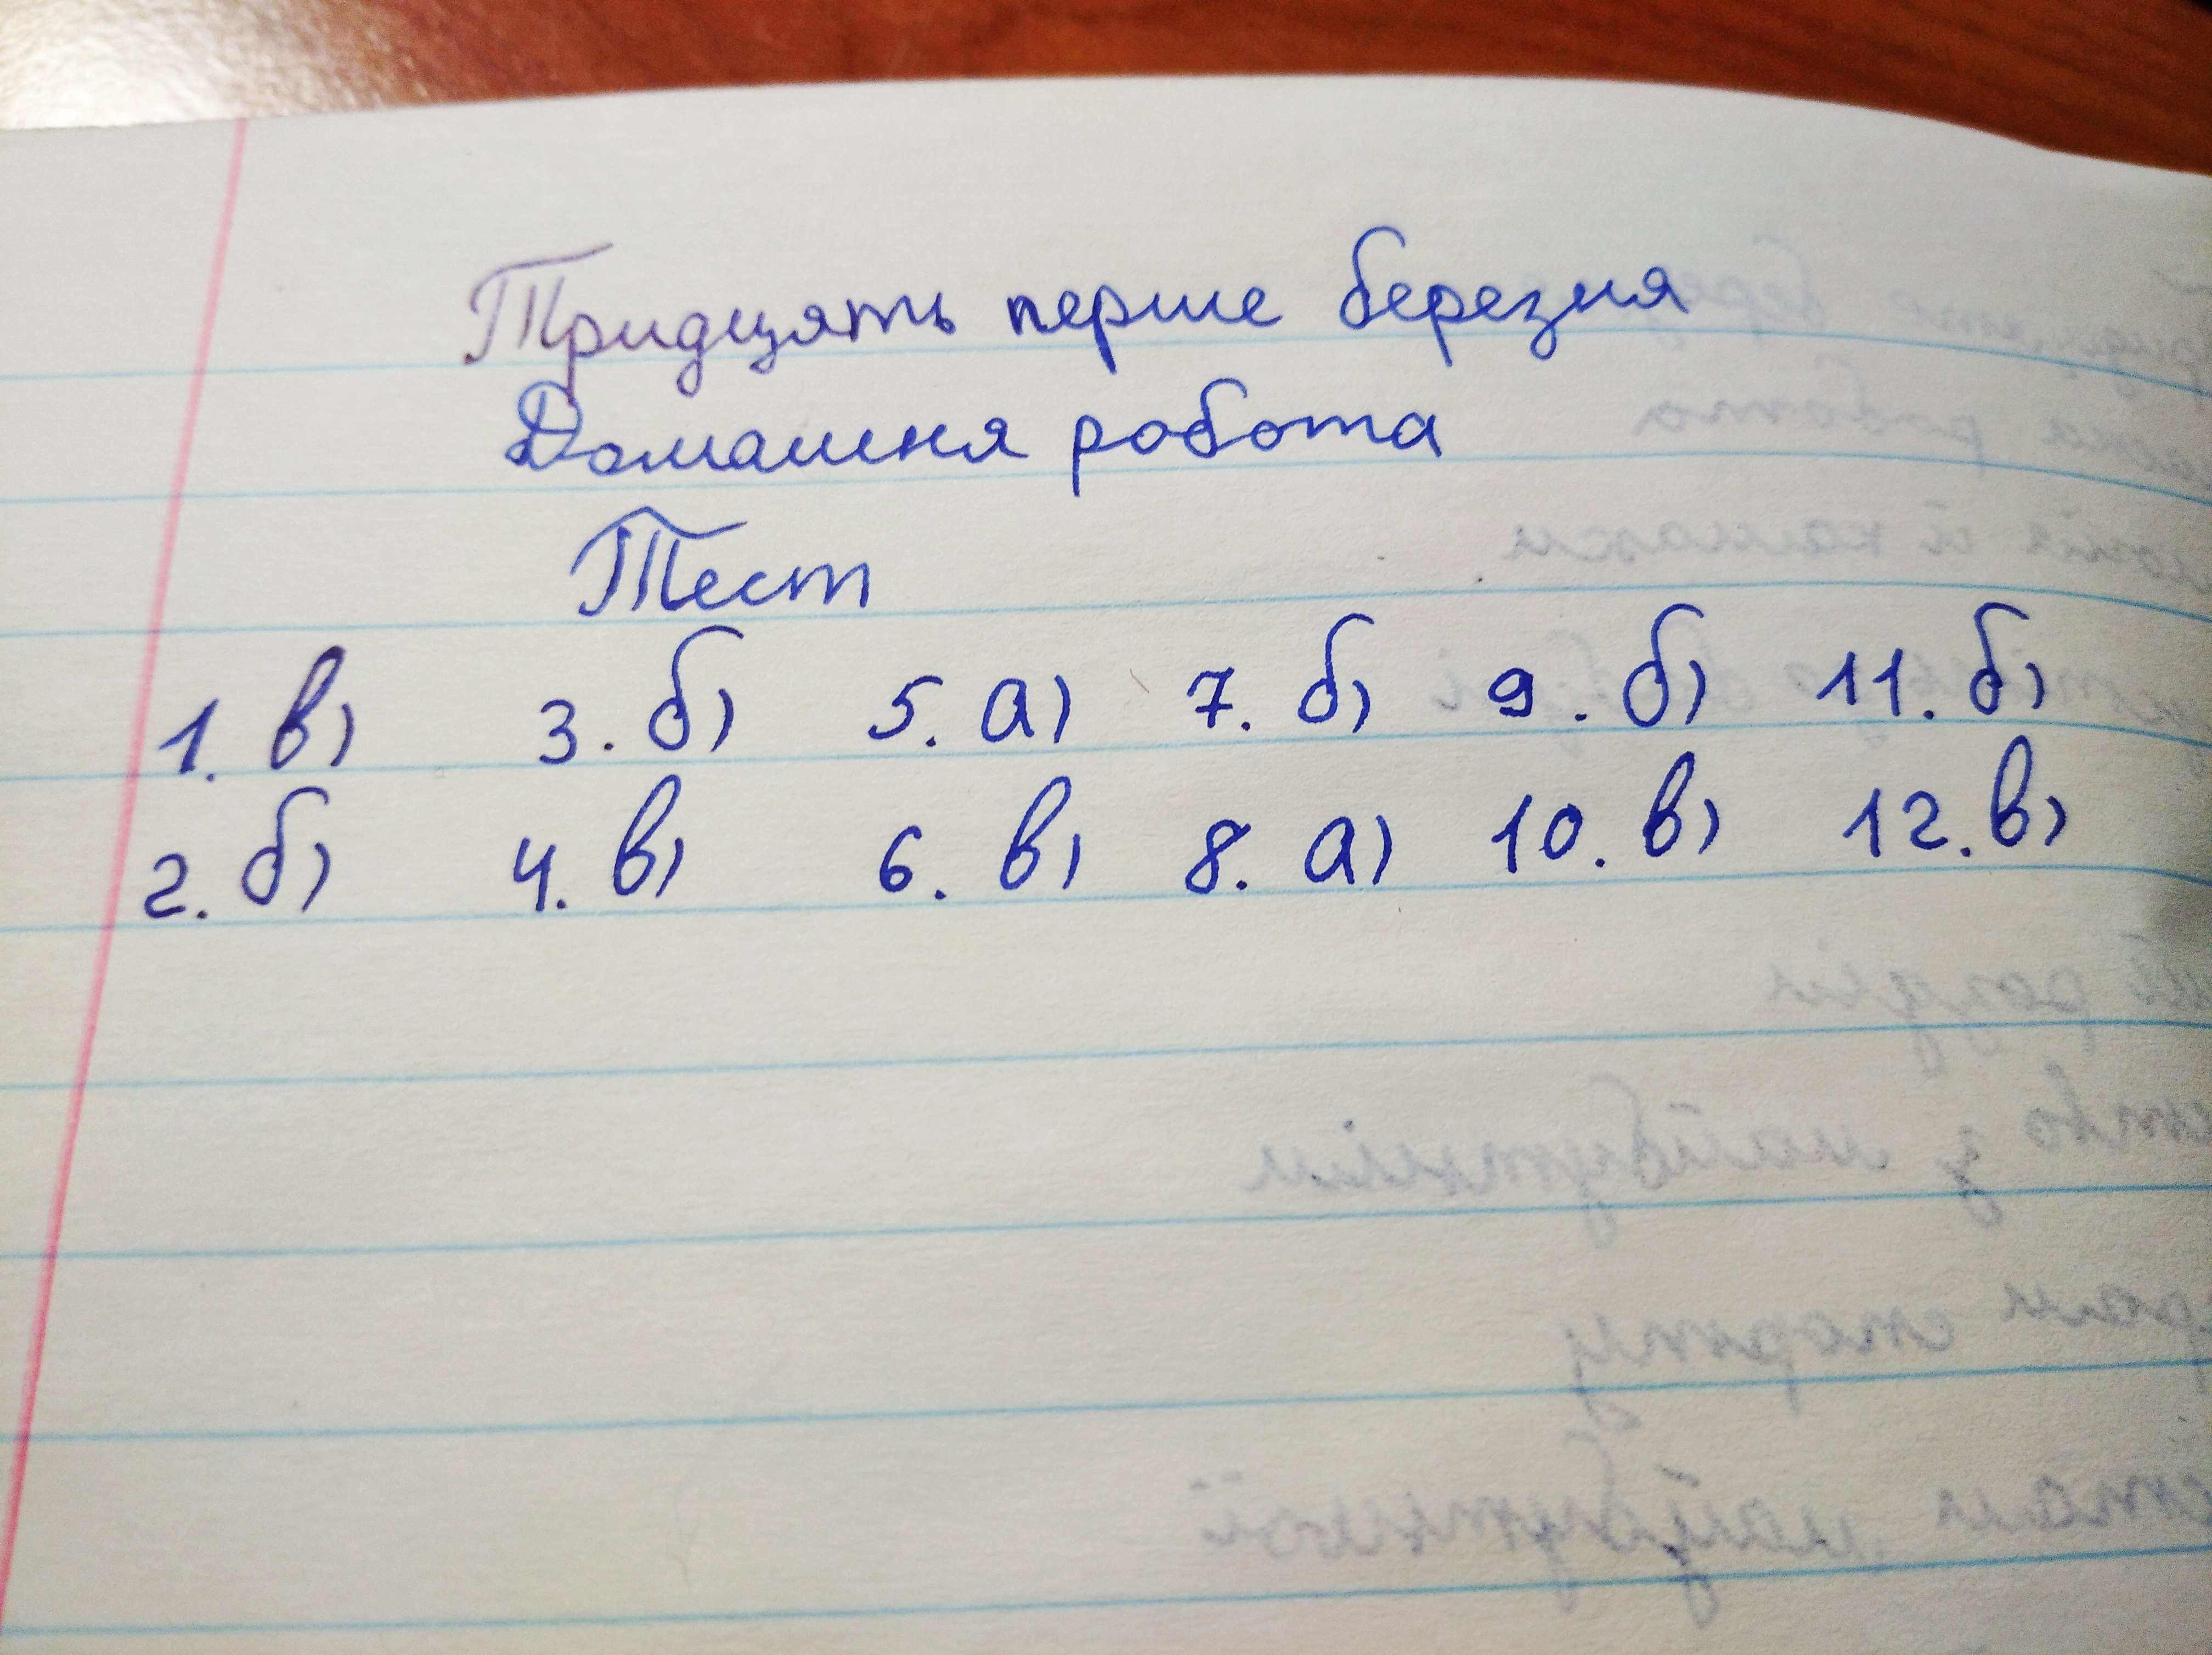 Тридцять перше березня
Домашня робота
Тест
1. в) 3. б) 5. а) 7. б) 9. б) 11. б)
2. б) 4. в) 6. в) 8. а) 10. в) 12. в)